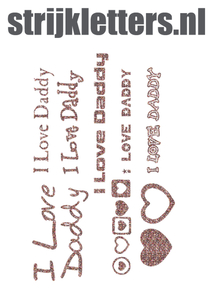 strijkletters.nl
I Love
Daddy
I Love Daddy
I Love Daddy
I Love Daddy
I LOVE DADDY
I LOVE DADDY